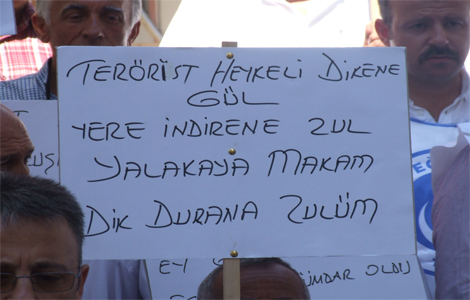 TERÖRİST HEYKELİ DİKENE
GÜL
YERE İNDİRENE ZUL
YALAKAYA MAKAM
DİK DURANA ZULÜM
EY
ÜMDAR OLDU